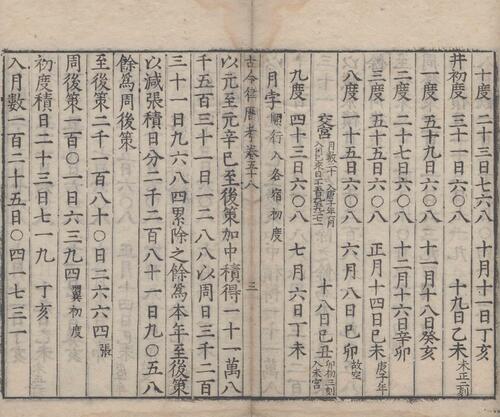 十度 二十三日七六八 十月十一日丁亥
井初度 三十一日六〇八 十九日乙未 木正二刻
一度 五十九日六〇八 十一月十八癸亥
二度 二十七日六〇八 十二月十六日辛卯
三度 五十五日六〇八 正月十四日己未 庚子年
八度 一十五日六〇八 六月八日己卯 故空
交宮 十八日己丑 卯初三刻入未宮
九度 四十三日六〇八 七月六日丁未
月孛 順行入各宿初度
古今律曆考 卷五十八 三
以元至元辛巳至後策加中積得一十一萬八
千五百三十一日一二八八以周日三千二百
三十一日九六八四累除之餘為本年至後策
以減張積日分二千二百八十一日九〇五八
餘為周後策
至後策二千一百八十〇日二六六四 張
周後策一百〇一日六三九四 翼初度
初度積日二十三日七一九 丁亥
入月數一百二十五日〇四一七三一